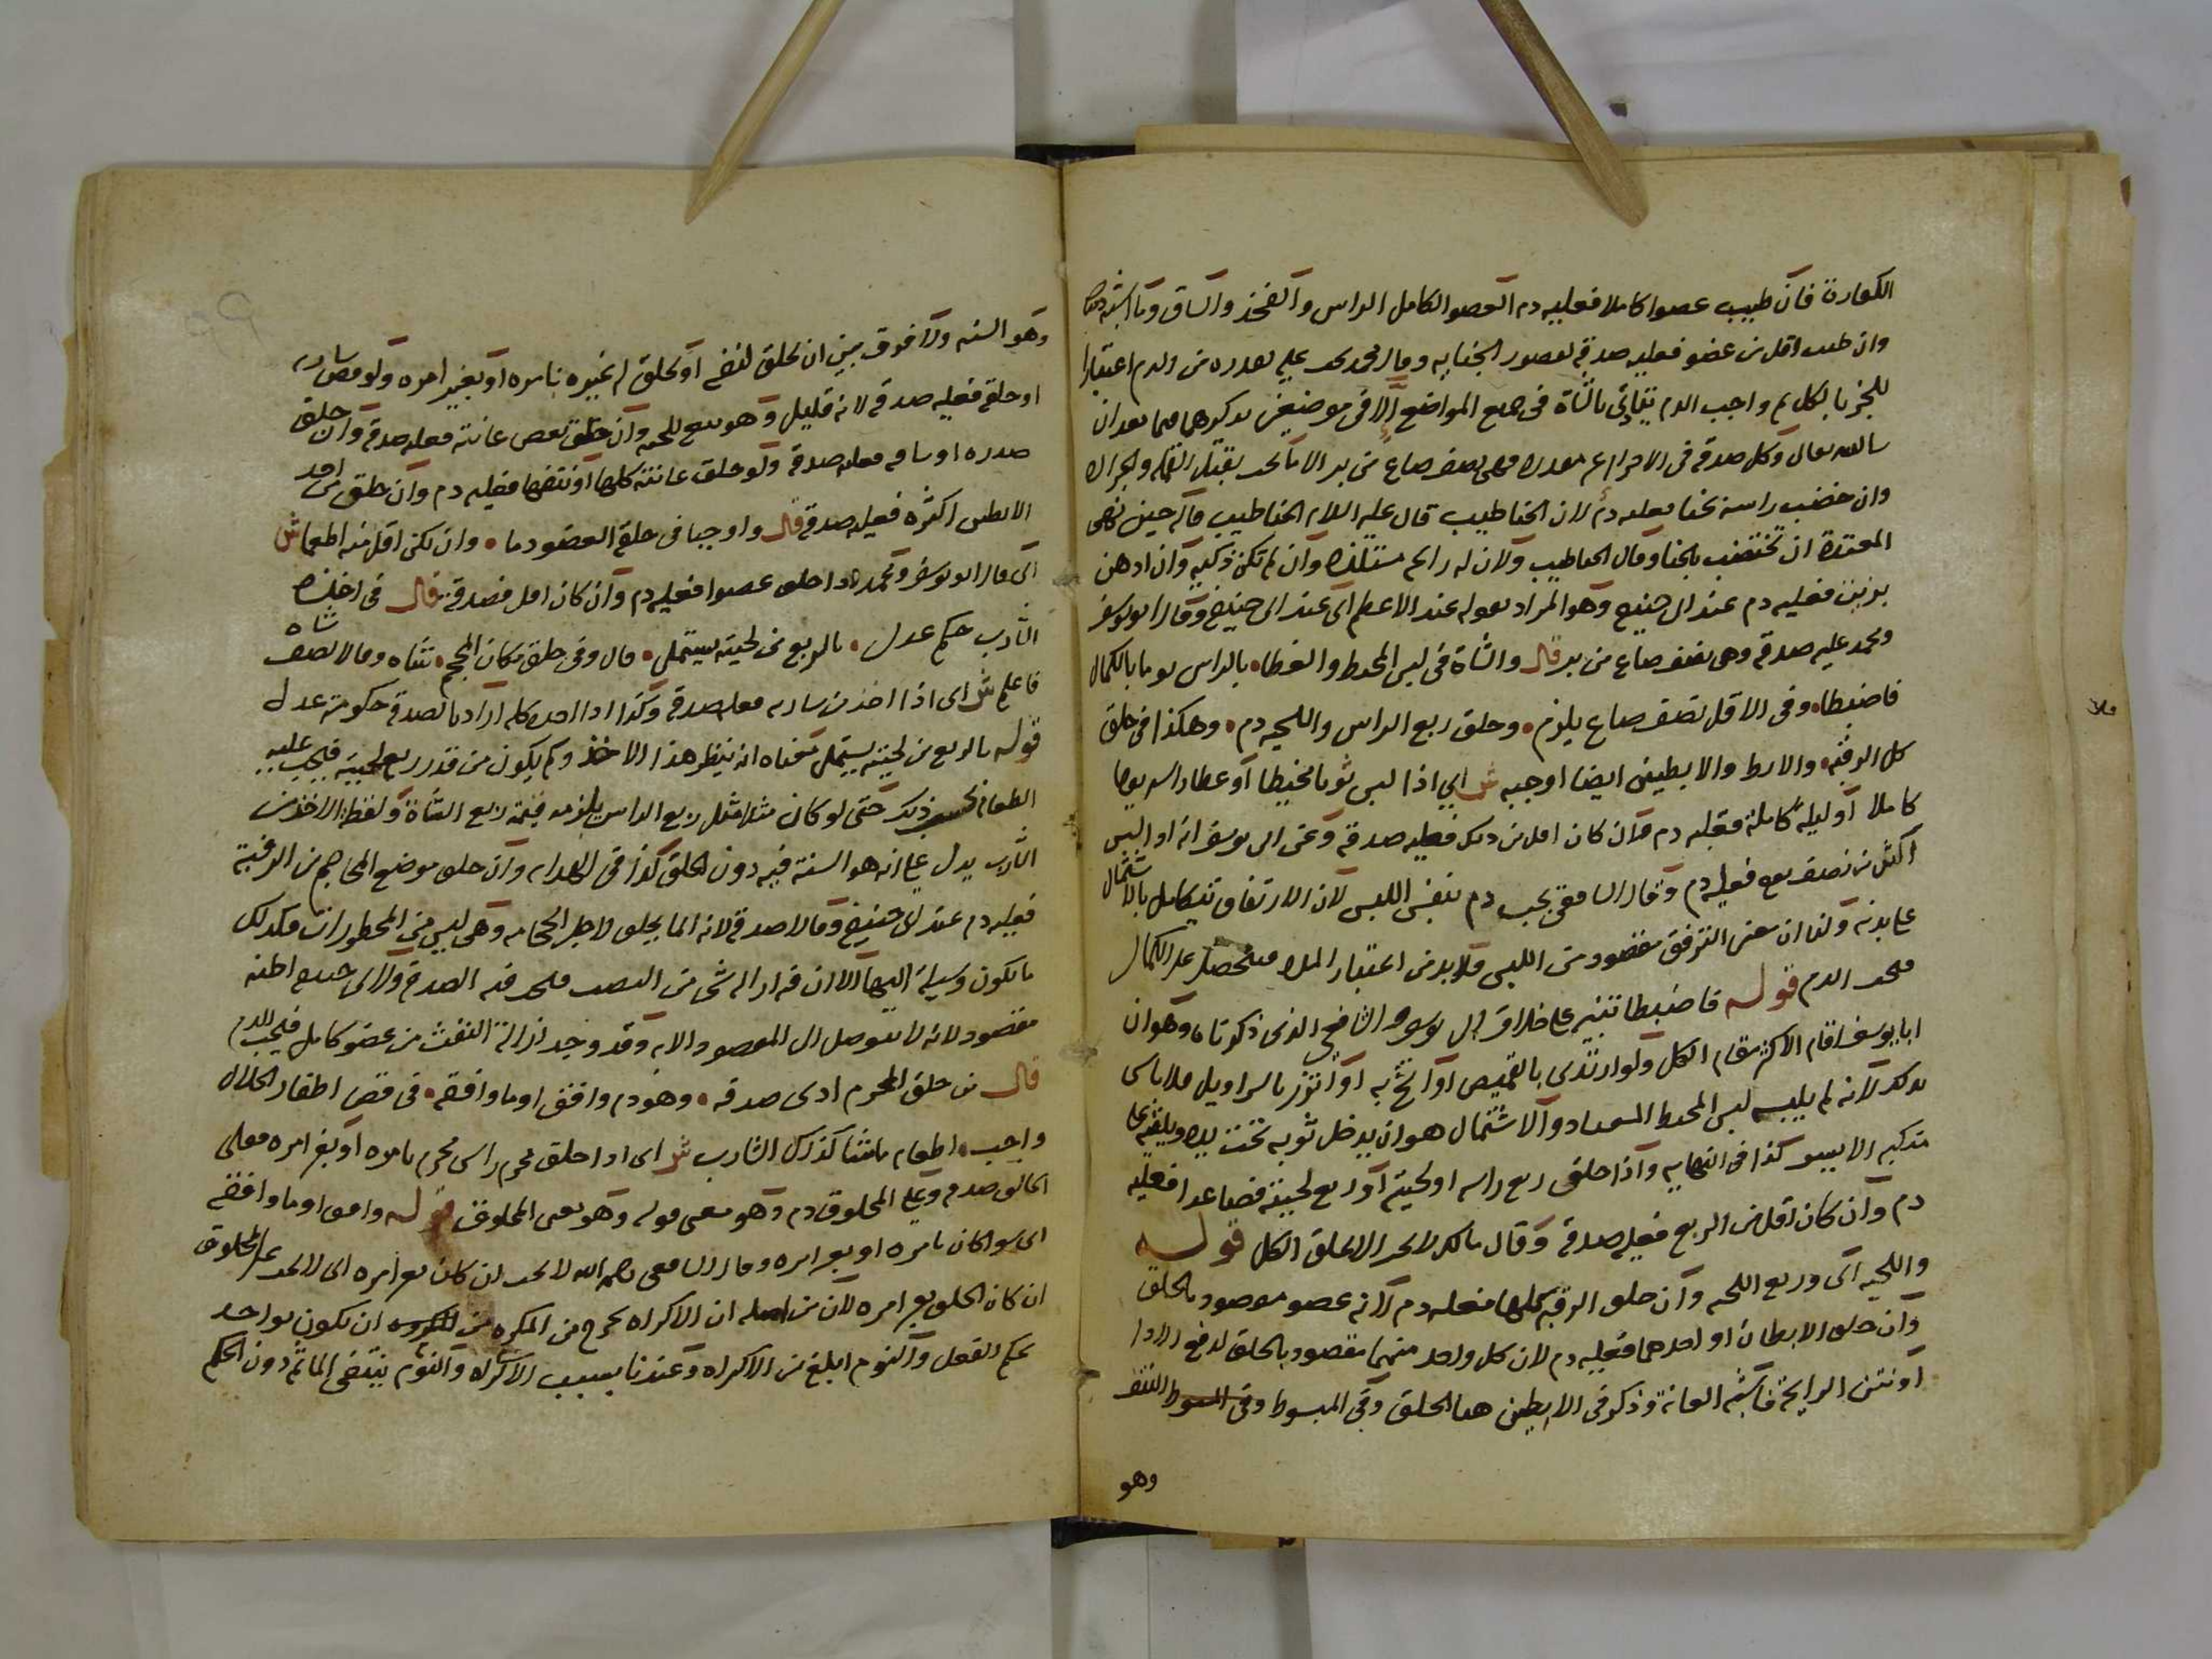 الكفارة فان طيب عضوا كاملا فعليه دم العضو الكامل الراس والفخذ والساق وما اشبه ذلك
وان طيب اقل من عضو فعليه صدقة لقصور الجناية وقال محمد يجب عليه بقدره من الدم اعتبارا
للجزء بالكل ثم واجب الدم يتادى بالشاة فى جميع المواضع الا فى موضعين نذكرهما فيما بعد ان
شا الله تعالى وكل صدقة فى الاحرام غير مقدرة فهى نصف صاع من بر الا ما يجب بقتل القملة والجرادة
وان خضب راسه بحنا فعليه دم لان الحنا طيب قال عليه السلام الحنا طيب قاله حين نهى
المعتدة ان تختضب بالحنا وقال الحنا طيب ولان له رايحة مستلذة وان لم تكن ذكية وان ادهن
بزيت فعليه دم عند ابى حنيفة وهو المراد بقوله عند الاعظم اى عند ابى حنيفة وقال ابو يوسف
ومحمد عليه صدقة وهى نصف صاع من بر قال والشاة فى لبس المخيط والغطا • بالراس يوما بالكمال
فاضبطا • وفى الاقل نصف صاع يلزم • وحلق ربع الراس واللحيه دم • وهكذا فى حلق
كل الرقبة • والابط والابطين ايضا اوجبه ش اي اذا لبس ثوبا مخيطا او غطا راسه يوما
كاملا او ليلة كاملة فعليه دم وان كان اقل من ذلك فعليه صدقة وعن ابى يوسف انه اذا لبس
اكثر من نصف يوم فعليه دم وقال الشافعى يجب دم بنفس اللبس لان الارتفاق يتكامل بالاشتمال
على بدنه ولنا ان معنى الترفق مقصود من اللبس فلا بد من اعتبار المدة فيتحصل على الكمال
فيجب الدم قوله فاضبطا تنبيه على خلاف ابى يوسف والشافعي الذى ذكرناه وهو ان
ابا يوسف اقام الاكثر مقام الكل ولو ارتدى بالقميص او اتشح به او اتزر بالسراويل فلا باس
بذلك لانه لم يلبسه لبس المخيط المعتاد والاشتمال هو ان يدخل ثوبه تحت يده ويلقيه على
منكبه الايسر كذا فى النهاية واذا حلق ربع راسه او لحيته او ربع لحيته فصاعدا فعليه
دم وان كان اقل من الربع فعليه صدقة وقال مالك لا يجب الا بحلق الكل قوله
واللحيه اى وربع اللحيه وان حلق الرقبة كلها فعليه دم لانه عضو مقصود بالحلق
وان حلق الابطان او احدهما فعليه دم لان كل واحد منهما مقصود بالحلق لدفع الاذا
او نتن الرايحة فاشبه العانة وذكر فى الابطين هنا الحلق وفى المبسوط النتف
وهو
وهو السنه ولا فرق بين ان يحلق لنفسه او يحلق له غيره بامره او بغير امره ولو قص شاربه
او حلقه فعليه صدقة لانه قليل وهو تبع للحيه وان حلق بعض عانته فعليه صدقة وان حلق
صدره او ساقه فعليه صدقة ولو حلق عانته كلها او نتفها فعليه دم وان حلق من احد
الابطين اكثره فعليه صدقة قال واوجبا فى حلقه العضو دما • وان يكن اقل منه اطعما ش
اى قال ابو يوسف ومحمد اذا حلق عضوا فعليه دم وان كان اقل فصدقة قال فى اخذه
الشارب حكم عدل • بالربع من لحيته يستملى • قال وفى حلق مكان المحجم • شاه وقالا نصف
فاعلم ش اى اذا اخذ من شاربه فعليه صدقة وكذا اذا اخذه كله اراد بالصدقة حكومة عدل
قوله بالربع من لحيته يستملى معناه انه ينظر هذا الاخذ وكم يكون من قدر ربع لحيته فيجب عليه
الطعام بحسب ذلك حتى لو كان مثلا مثل ربع الراس يلزمه قيمة ربع الشاة ولفظه الاخذ من
الشارب يدل على انه هو السنة فيه دون الحلق كذا فى الهداية وان حلق موضع المحاجم من الرقبة
فعليه دم عند ابى حنيفة وقالا صدقة لانه انما يحلق لاجل الحجامه وهى ليس من المحظورات فكذلك
ما يكون وسيلة اليها الا ان فيه ازاله شى من التفث فيجب فيه الصدقة ولابى حنيفة انه
مقصود لانه لا يتوصل الى المقصود الا به وقد وجد ازالة التفث من عضو كامل فيجب الدم
قال من حلق المحرم ادى صدقه • وهو دم وافق او ما وافقه • فى قص اظفار الحلال
واجب • اطعام ما شا كذاك الشارب ش اى اذا حلق محرم راس محرم بامره او بغير امره فعلى
الحالق صدقة وعلى المحلوق دم وهو معنى قوله وهو يعنى المحلوق قوله وافق او ما وافقه
اى سوا كان بامره او بغير امره وقال الشافعى رحمه الله لا يجب ان كان بغير امره اى لا يجب على المحلوق
ان كان الحلق بغير امره لان من اصله ان الاكراه يخرج المكره من ان يكون مواخذ
بحكم الفعل والنوم ابلغ من الاكراه وعندنا بسبب الاكراه والنوم ينتفى الماثم دون الحكم